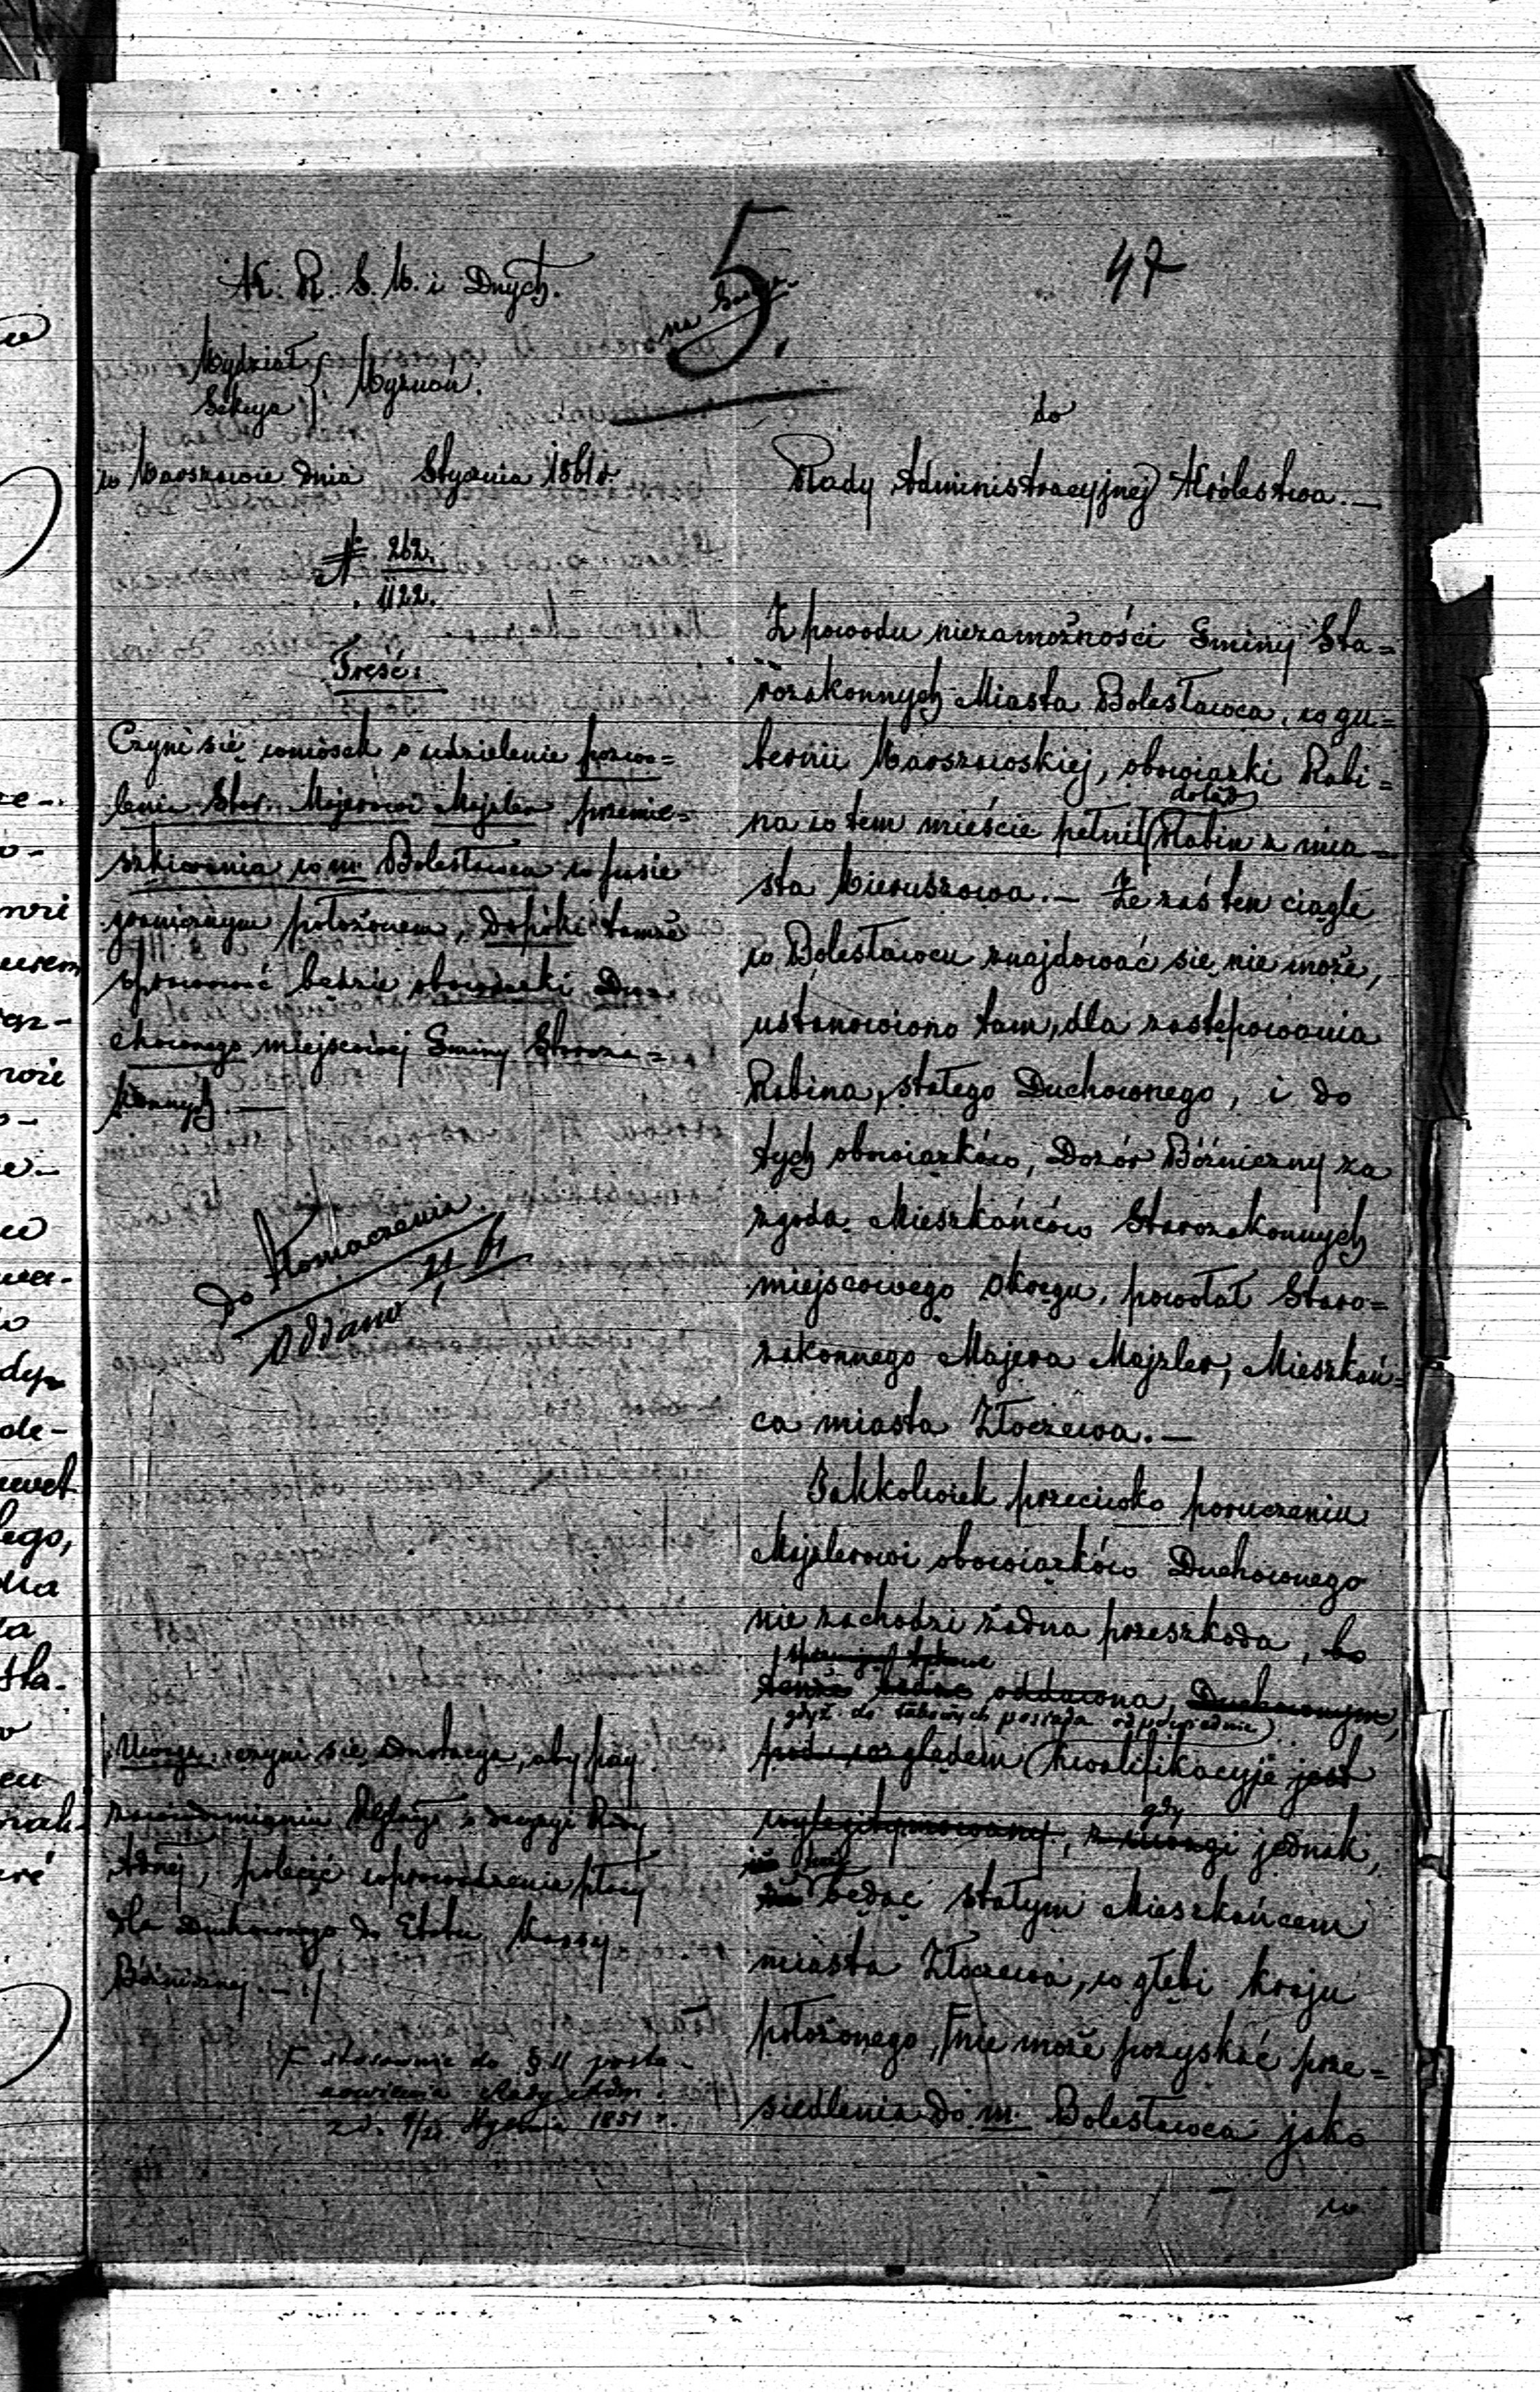 5.
47
K. R. S. W. i Dnych.
Wydział }
Sekcya } Wyznań.
w Warszawie dnia Stycznia 1861 r.
N. 262.
1122.
Treść:
Czyni się wniosek o udzielenie pozwo=
lenia Star. Majerowi Majzler przemie=
szkiwania w m. Bolesławcu w pasie
granicznym położonem, dopóki tamże
sprawować będzie obowiązki Du=
chownego miejscowej Gminy Staroza=
konnych.—
do tłomaczenia
Oddano 21/1 61
Uwaga. czyni się adnotacya, aby przy
zawiadomieniu o decyzyi Rady
Admej, polecić wprowadzenie płacy
dla Duchownego do Etatu Kassy
Bóżniczej.—
F stosownie do § 11 posta=
nowienia Rady Adm.
z d. Stycznia 1851 r.
do
Rady Administracyjnej Królestwa.—
Z powodu niezamożności Gminy Sta=
rozakonnych Miasta Bolesławca, w gu=
bernii Warszawskiej, obowiązki Rabi=
dotąd
na w tem mieście pełnił Rabin z mia=
sta Wieruszowa.— Że zaś ten ciągle
w Bolesławcu znajdować się nie może,
ustanowiono tam, dla zastępowania
Rabina, stałego Duchownego, i do
tych obowiązków, Dozór Bóżniczny za
zgodą Mieszkańców Starozakonnych
miejscowego Okręgu, powołał Staro=
zakonnego Majera Majzler, Mieszkań=
ca miasta Złoczewa.—
Jakkolwiek przeciwko poruczeniu
Majzlerowi obowiązków Duchownego
nie zachodzi żadna przeszkoda, bo
tenże oddawna Duchownym,
gdyż do takowych posiada odpowiednie
pod względem kwalifikacyje jest
gdy
wylegitymowany, z uwagi jednak,
że będąc stałym Mieszkańcem
miasta Złoczewa, w głębi kraju
położonego, F nie może pozyskać prze=
siedlenia do m. Bolesławca jako
w